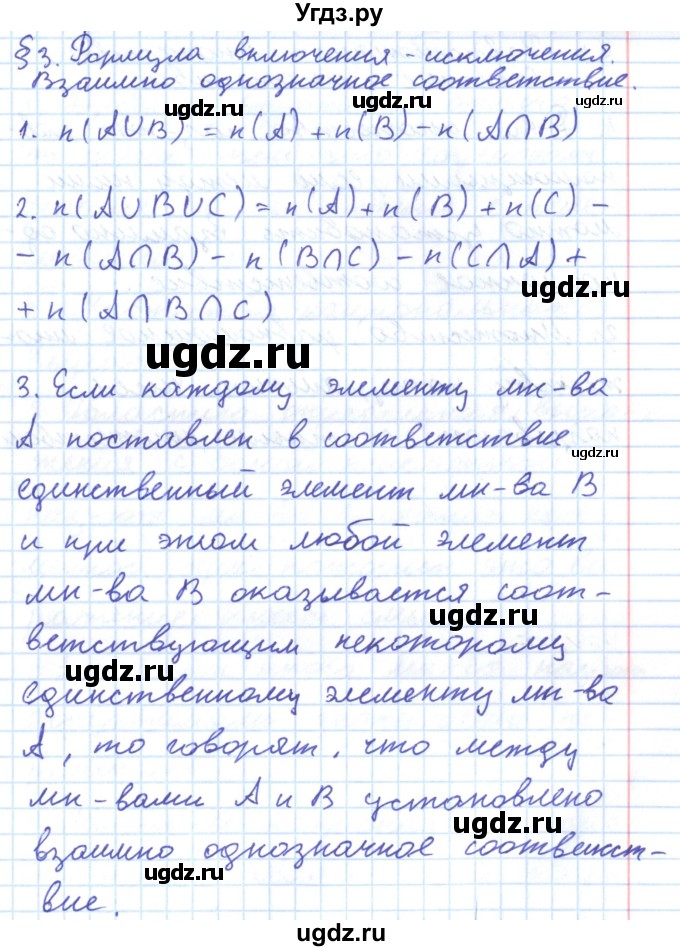 Угдз.ру
§3. Формула включения-исключения.
Взаимно однозначное соответствие.
ugdz.ru ugdz.ru ugdz.ru
1. n(A∪B) = n(A) + n(B) - n(A∩B)
ugdz.ru
2. n(A∪B∪C) = n(A) + n(B) + n(C) -
- n(A∩B) - n(B∩C) - n(C∩A) +
ugdz.ru
+ n(A∩B∩C)
ugdz.ru
3. Если каждому элементу мн-ва
A поставлен в соответствие
ugdz.ru
единственный элемент мн-ва B
и при этом любой элемент
мн-ва B оказывается соот-
ugdz.ru
ветствующим некоторому
ugdz.ru
единственному элементу мн-ва
A, то говорят, что между
мн-вами A и B установлено
ugdz.ru
взаимно однозначное соответст-
ugdz.ru
вие.
ugdz.ru